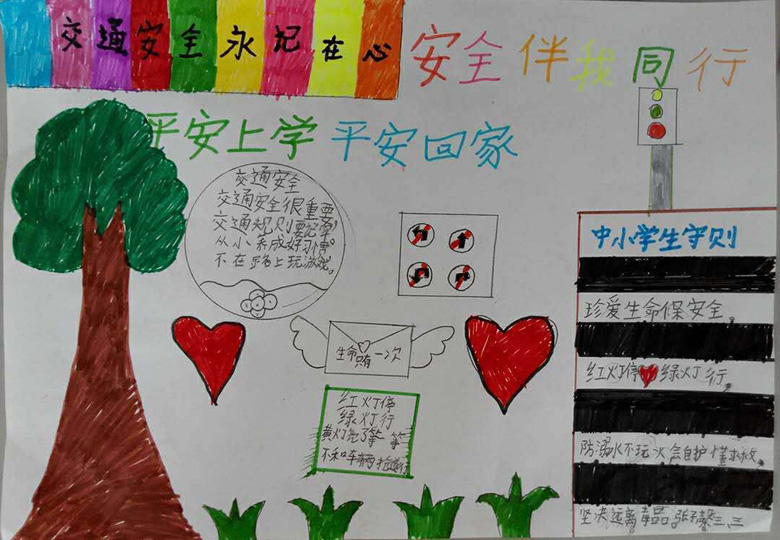 交通安全永记在心
安全伴我同行
平安上学 平安回家
交通安全
交通安全很重要
交通规则要记牢
从小养成好习惯。
不在马路上玩游戏。
生命只有一次
红灯停
绿灯行
黄灯亮了等一等
不和车辆抢道行
中小学生守则
珍爱生命保安全。
红灯停绿灯行。
防溺水不玩火会自护懂求救。
坚决远离毒品
三、三